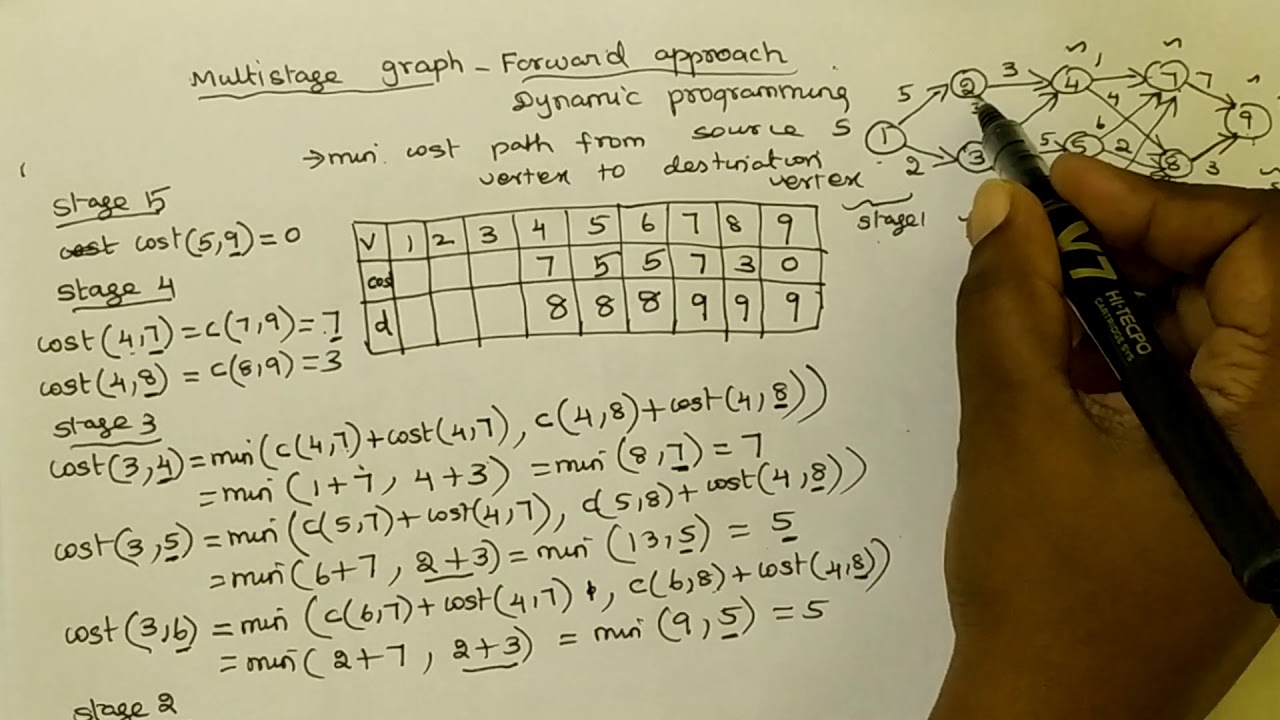 Multistage graph - Forward approach
Dynamic programming
→ min. cost path from source S
vertex to destination
vertex
5 2 3 4 1 7 7
1 4 9
2 3 5 5 6 2 8 3
stage 1
V 1 2 3 4 5 6 7 8 9
cost 7 5 5 7 3 0
d 8 8 8 9 9 9
stage 5
cost cost(5,9)=0
stage 4
cost(4,7)=c(7,9)=7
cost(4,8) = c(8,9)=3
stage 3
cost(3,4)=min(c(4,7)+cost(4,7), c(4,8)+cost(4,8))
=min(1+7, 4+3) =min(8,7)=7
cost(3,5)=min(c(5,7)+cost(4,7), c(5,8)+cost(4,8))
=min(6+7, 2+3)=min(13,5) = 5
cost(3,6) = min(c(6,7)+cost(4,7), c(6,8)+cost(4,8))
=min(2+7, 2+3) = min(9,5) = 5
stage 2
V7
HI-TECPO
CARTRIDGE SYS